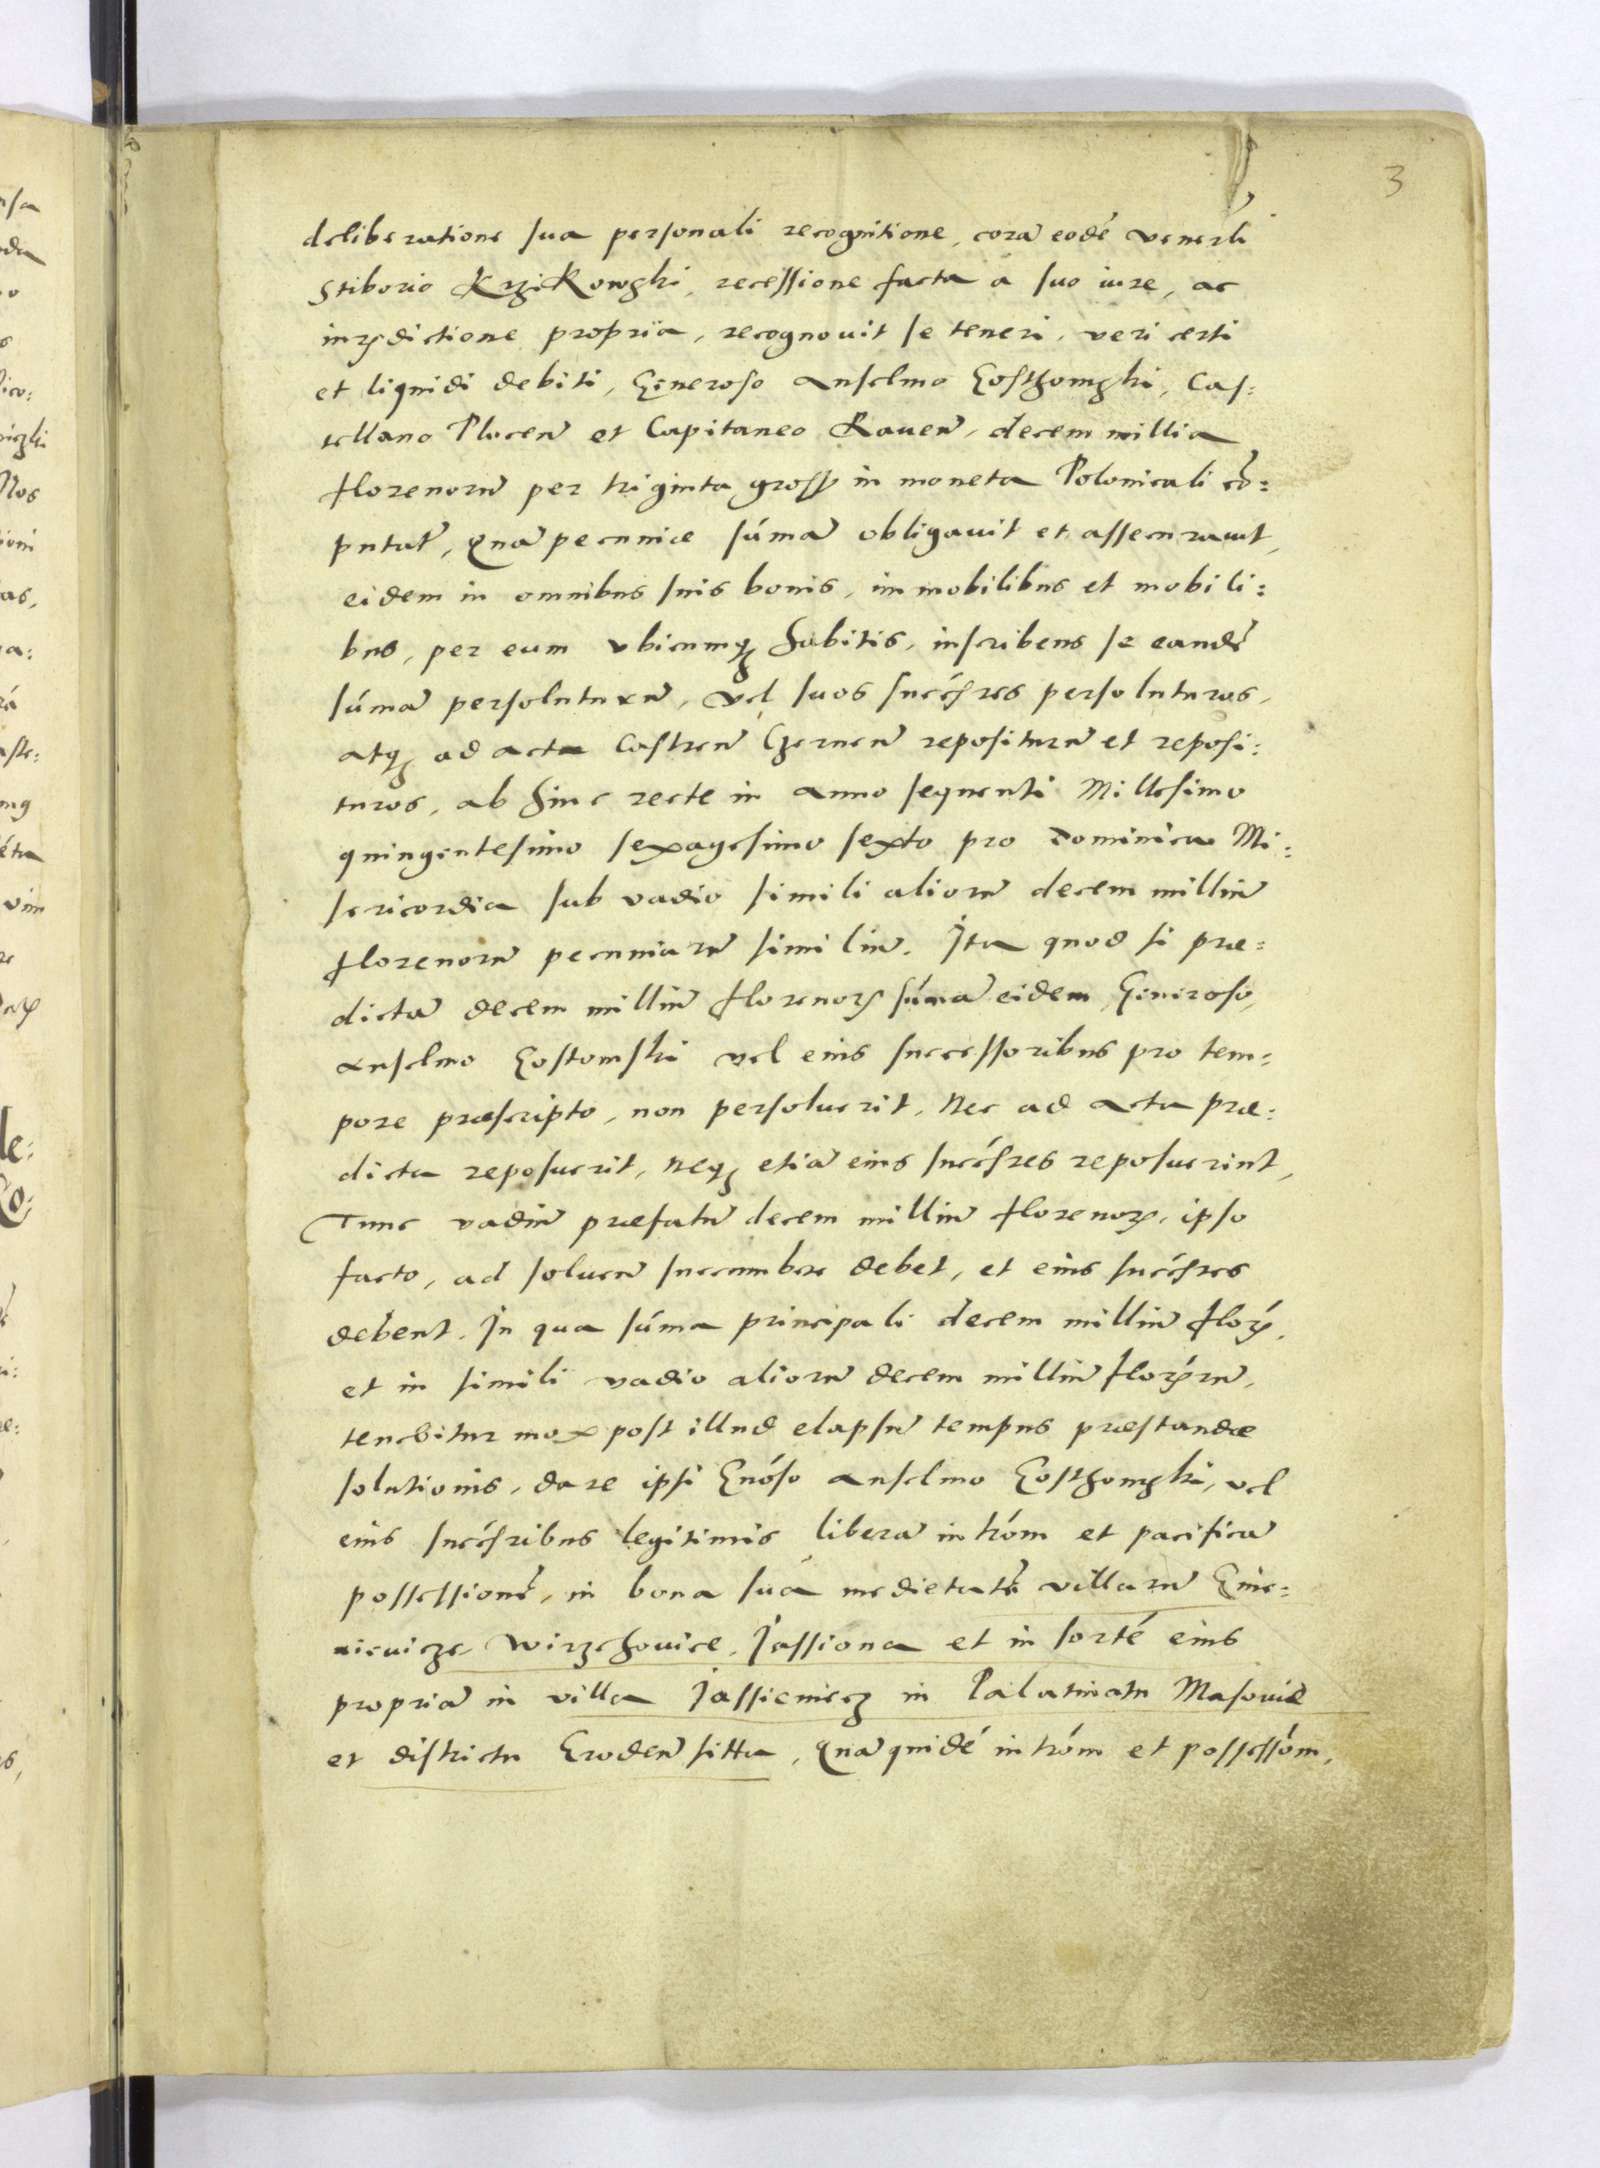 3
deliberatione sua personali recognitione, corã eodẽ venerli
Stiborio KrziKowski, recessione facta a suo iure, ac
inrisdictione propria, recognouit se teneri, veri certi
et liquidi debiti, Generoso Anselmo Gosthomski, Cas:
tellano Plocen̄ et Capitaneo Rauen̄, decem millia
florenorũ per triginta gross in moneta Polonicali cõ:
putat̄, Quã pecuniæ súmã obligauit et assecurauit,
eidem in omnibus suis bonis, immobilibus et mobili:
bus, per eum vbicunq; habitis, inscribens se eandẽ
súmã persoluturũ, vel suos succéssres persoluturos,
atq; ad acta Castren̄ Czernen̄ repositurũ et reposi:
turos, ab hinc recte in anno sequenti Millesimo
quingentesimo sexagesimo sexto pro dominica Mi:
sericordia sub vadio simili aliorũ decem milliũ
florenorũ pecuniarũ similiũ. Ita quod si præ:
dictã decem milliũ florenorum súmã eidem Generoso,
Anselmo Gostomski vel eius successoribus pro tem:
pore præscripto, non persoluerit, Nec ad Acta præ:
dicta reposuerit, neq; etiã eius succésres reposuerint,
Tunc vadiũ præfatũ decem milliũ florenorum, ipso
facto, ad soluen̄ succumbere debet, et eius succésres
debent. In qua súma principali decem milliũ flor,
et in simili vadio aliorũ decem milliũ florrũ,
tenebitur mox post illud elapsũ tempus præstandæ
solutionis, dare ipsi Gnóso Anselmo Gosthomski, vel
eius succésribus legitimis liberã intróm et pacificã
possessionẽ, in bona suá medietatẽ villarũ
Wirzchouice, Jassiona et in sorté eius
propriã in villa Jassieniecz in Palatinatu Masouiæ
et districtu Groden̄ sitta, Quã quidé intróm et possessióm,